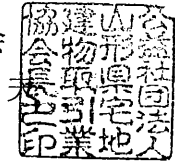 公益社団法人
山形県宅地
建物取引業
協会長之印